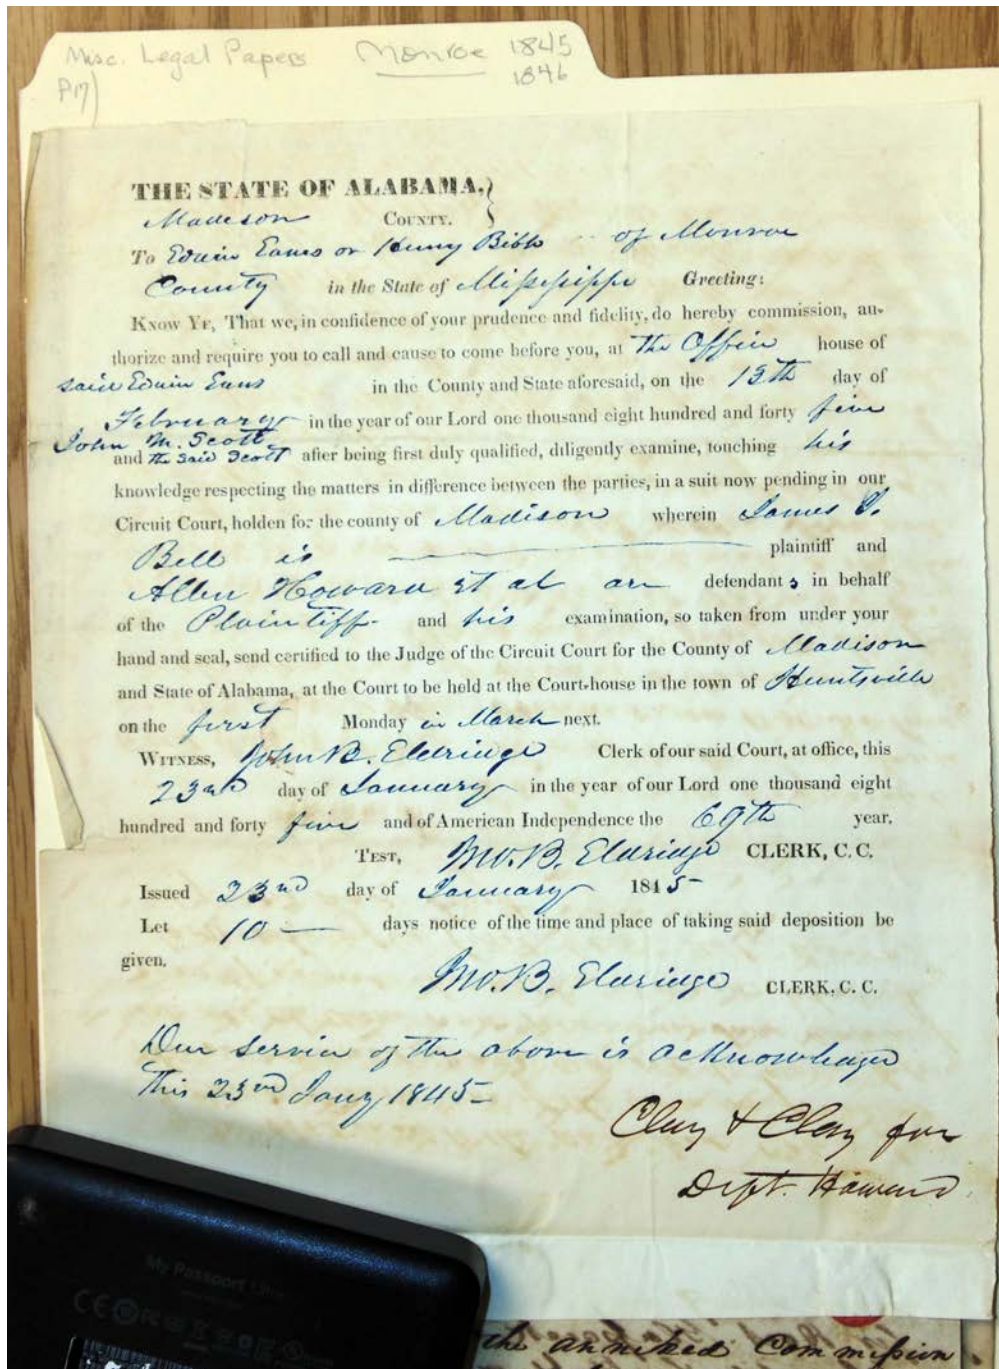 Misc. Legal Papers Monroe 1845
P17) 1846
THE STATE OF ALABAMA,}
Madison COUNTY.
To Edwin Eanes or Henry Bibb of Monroe
County in the State of Mississippi Greeting:
KNOW YE, That we, in confidence of your prudence and fidelity, do hereby commission, au-
thorize and require you to call and cause to come before you, at the Office house of
said Edwin Eans in the County and State aforesaid, on the 13th day of
February in the year of our Lord one thousand eight hundred and forty five
John M. Scott
and the said Scott after being first duly qualified, diligently examine, touching his
knowledge respecting the matters in difference between the parties, in a suit now pending in our
Circuit Court, holden for the county of Madison wherein James
Bell is plaintiff and
Allen Howard et al are defendants in behalf
of the Plaintiff and his examination, so taken from under your
hand and seal, send certified to the Judge of the Circuit Court for the County of Madison
and State of Alabama, at the Court to be held at the Court-house in the town of Huntsville
on the first Monday in March next.
WITNESS, John B. Eldridge Clerk of our said Court, at office, this
23rd day of January in the year of our Lord one thousand eight
hundred and forty five and of American Independence the 69th year.
TEST, Jno. B. Eldridge CLERK, C. C.
Issued 23rd day of January 1845
Let 10 — days notice of the time and place of taking said deposition be
given.
Jno. B. Eldridge CLERK, C. C.
Due service of the above is acknowledged
this 23rd Jany 1845-
Clay & Clay for
Deft. Howard
My Passport Ultra
the annexed Commission